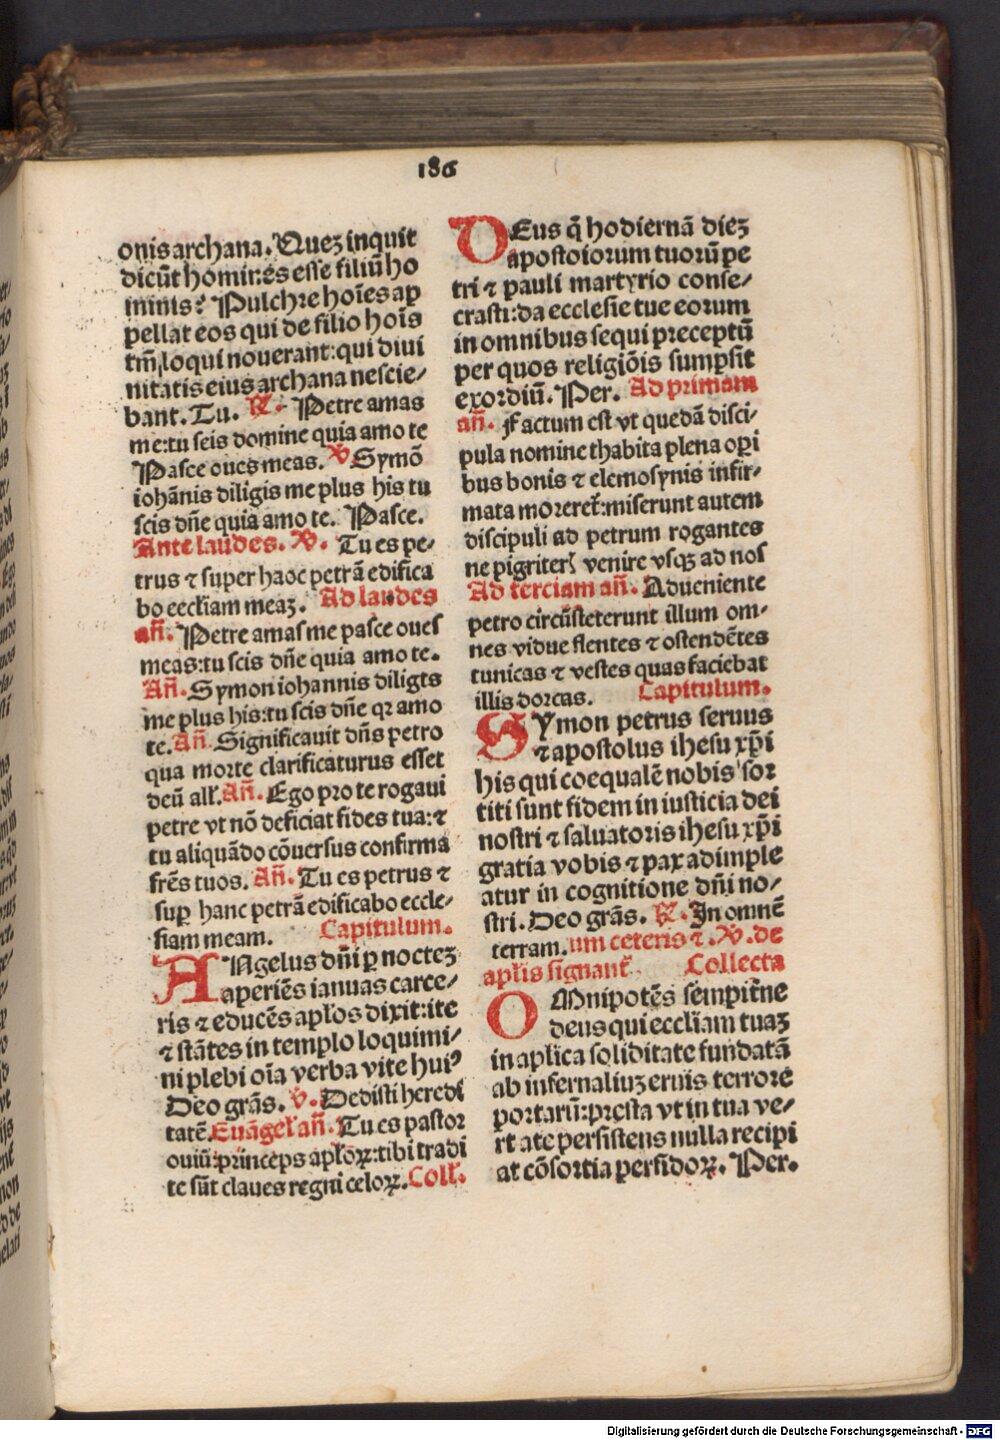 186
onis archana. Quez inquit
dicūt homines esse filiū ho
minis? Pulchre hoīes ap
pellat eos qui de filio hoīs
tm̄ loqui nouerant: qui diui
nitatis eius archana nescie-
bant. Tu. ℟. Petre amas
me: tu scis domine quia amo te
Pasce oues meas. ℣ Symō
iohānis diligis me plus his tu
scis dn̄e quia amo te. Pasce.
Ante laudes. ℣. Tu es pe-
trus ⁊ super haoc petrā edifica
bo eccliam meaz. Ad laudes
an̄. Petre amas me pasce oues
meas: tu scis dn̄e quia amo te.
An̄. Symon iohannis diligis
me plus his: tu scis dn̄e qꝛ amo
te. An̄ Significauit dn̄s petro
qua morte clarificaturus esset
deū all'. An̄. Ego pro te rogaui
petre vt nō deficiat fides tua: ⁊
tu aliquādo cōuersus confirma
fr̄es tuos. An̄. Tu es petrus ⁊
sup̱ hanc petrā edificabo eccle-
siam meam. Capitulum.
ANgelus dn̄i ꝑ noctez
aperiēs ianuas carce-
ris ⁊ educēs apl'os dixit: ite
⁊ stātes in templo loquimi-
ni plebi oīa verba vite huiꝰ
Deo grās. ℣. Dedisti heredi
tatē. Euāgel' an̄. Tu es pastor
ouiū: princeps apl'oꝝ: tibi tradi
te sūt claues regni celoꝝ. Coll'.
DEus q̄ hodiernā diez
apostolorum tuorū pe
tri ⁊ pauli martyrio conse-
crasti: da ecclesie tue eorum
in omnibus sequi preceptū
per quos religiōis sumpsit
exordiū. Per. Ad primam
an̄. Factum est vt quedā disci-
pula nomine thabita plena oꝑi
bus bonis ⁊ elemosynis infir-
mata moreret̄: miserunt autem
discipuli ad petrum rogantes
ne pigriteris venire vsqꝫ ad nos
Ad terciam an̄. Adueniente
petro circūsteterunt illum om-
nes vidue flentes ⁊ ostendētes
tunicas ⁊ vestes quas faciebat
illis dorcas. Capitulum.
SYmon petrus seruus
⁊ apostolus ihesu xp̄i
his qui coequalē nobis sor
titi sunt fidem in iusticia dei
nostri ⁊ saluatoris ihesu xp̄i
gratia vobis ⁊ pax adimple
atur in cognitione dn̄i no-
stri. Deo grās. ℟. In omnē
terram. um ceteris ⁊. ℣. de
apl'is signant̄. Collecta
OMnipotēs sempit̄ne
deus qui eccliam tuaz
in aplica soliditate fundatā
ab infernaliuz eruis terrore
portarū: presta vt in tua ve-
rt ate persistens nulla recipi
at cōsortia persidoꝝ. Per.
Digitalisierung gefördert durch die Deutsche Forschungsgemeinschaft - DFG